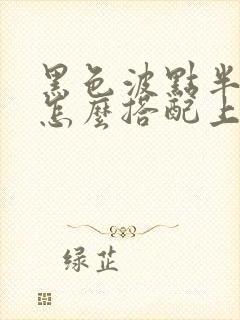 黑色波點半
怎麼搭配上
绿芷